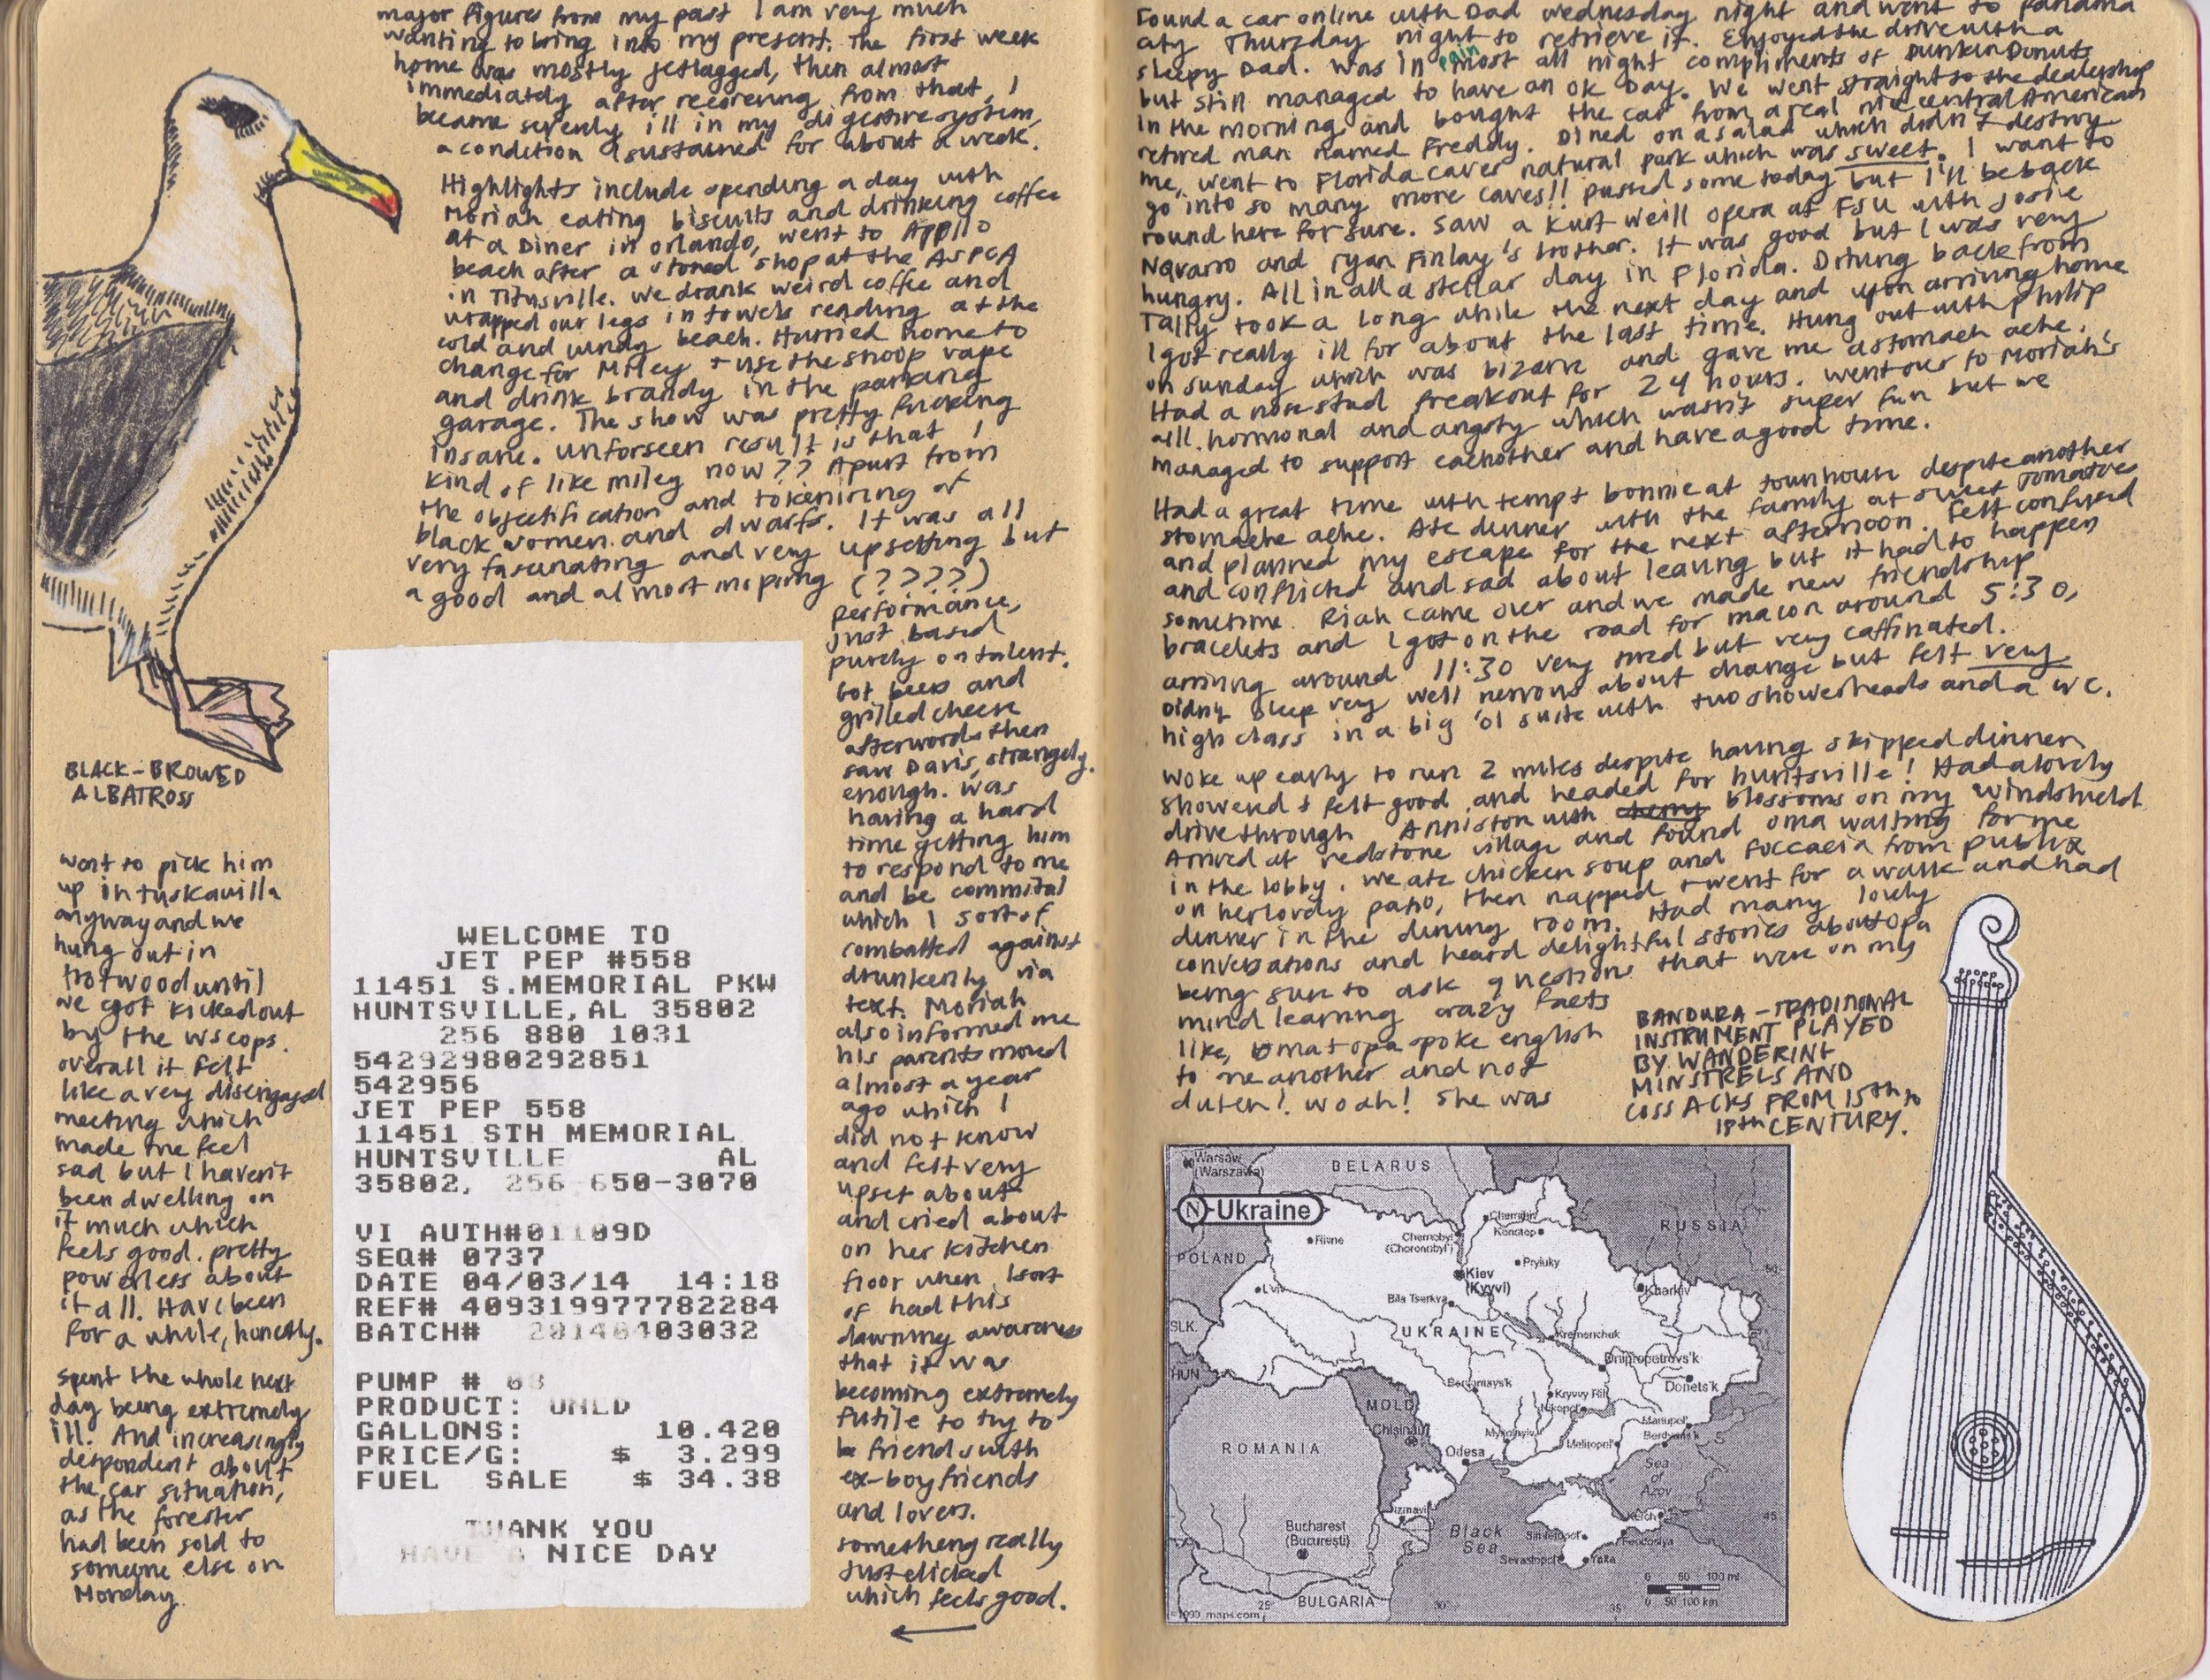 major figures from my past I am very much
wanting to bring into my present. The first week
home was mostly jetlagged, then almost
immediately after recovering from that, I
became severly ill in my digestive system,
a condition I sustained for about a week.
Highlights include spending a day with
Moriah eating biscuits and drinking coffee
at a Diner in Orlando, went to Apollo
beach after a stoned shop at the ASPCA
in Titusville. We drank weird coffee and
wrapped our legs in towels reading at the
cold and windy beach. Hurried home to
change for Miley + use the snoop vape
and drink brandy in the parking
garage. The show was pretty fucking
insane. Unforseen result is that I
kind of like miley now?? Apart from
the objectification and tokenizing of
black women and dwarfs. It was all
very fascinating and very upsetting but
a good and almost inspiring (????)
performance,
just based
purely on talent.
Got beer and
grilled cheese
afterwords then
saw Davis, strangely
enough. Was
having a hard
time getting him
to respond to me
and be commital
which I sort of
combatted against
drunkenly via
text. Moriah
also informed me
his parents moved
almost a year
ago which I
did not know
and felt very
upset about
and cried about
on her kitchen
floor when I sort
of had this
dawning awareness
that it was
becoming extremely
futile to try to
be friends with
ex-boyfriends
and lovers.
something really
just clicked
which feels good.
BLACK-BROWED
ALBATROSS
went to pick him
up in tuskawilla
anyway and we
hung out in
trotwood until
we got kicked out
by the WS cops.
overall it felt
like a very disengaged
meeting which
made me feel
sad but I haven't
been dwelling on
it much which
feels good. pretty
powerless about
it all. Have been
for a while, honestly.
spent the whole next
day being extremely
ill. And increasingly
despondent about
the car situation,
as the forester
had been sold to
someone else on
Monday.
WELCOME TO
JET PEP #558
11451 S.MEMORIAL PKW
HUNTSVILLE,AL 35802
256 880 1031
54292980292851
542956
JET PEP 558
11451 STH MEMORIAL
HUNTSVILLE AL
35802, 256-650-3070
VI AUTH#01109D
SEQ# 0737
DATE 04/03/14 14:18
REF# 409319977782284
BATCH# 20140403032
PUMP # 03
PRODUCT: UNLD
GALLONS: 10.420
PRICE/G: $ 3.299
FUEL SALE $ 34.38
THANK YOU
HAVE A NICE DAY
Found a car online with Dad wednesday night and went to Panama
city Thurzday night to retrieve it. Enjoyed the drive with a
sleepy Dad. Was in pain most all night compliments of Dunkin Donuts
but still managed to have an ok Day. We went straight to the dealership
in the morning and bought the car from a real nice central American
retired man named Freddy. Dined on a salad which didn't destroy
me, went to Florida caves natural park which was sweet. I want to
go into so many more caves!! passed some today but I'll be back
round here for sure. Saw a Kurt Weill opera at FSU with Josie
Navarro and Ryan Finlay's brother. It was good but I was very
hungry. All in all a stellar day in Florida. Driving back from
Tally took a long while the next day and upon arriving home
I got really ill for about the last time. Hung out with Philip
on sunday which was bizarre and gave me a stomach ache.
Had a nose stud freakout for 24 hours. Went over to Moriah's
all hormonal and angsty which wasn't super fun but we
managed to support eachother and have a good time.
Had a great time with temp + bonnie at townhouse despite another
stomache ache. Ate dinner with the family at sweet tomatoes
and planned my escape for the next afternoon. Felt confused
and conflicted and sad about leaving but it had to happen
sometime. Riah came over and we made new friendship
bracelets and I got on the road for macon around 5:30,
arriving around 11:30 very tired but very caffinated.
Didn't sleep very well nervous about change but felt very
high class in a big 'ol suite with two showerheads and a W.C.
Woke up early to run 2 miles despite having skipped dinner
showered + felt good and headed for huntsville! Had a lovely
drive through Anniston with blossoms on my windshield
Arrived at redstone village and found oma waiting for me
in the lobby. We ate chicken soup and foccacia from publix
on her lovely patio, then napped + went for a walk and had
dinner in the dining room. Had many lovely
conversations and heard delightful stories about opa
being sure to ask questions that were on my
mind learning crazy facts
like, oma + opa spoke english
to one another and not
dutch! Woah! She was
BANDURA - TRADITIONAL
INSTRUMENT PLAYED
BY WANDERING
MINSTRELS AND
COSSACKS FROM 15th to
18th CENTURY.
Warsaw
(Warszawa)
BELARUS
N Ukraine
RUSSIA
POLAND
Rivne
Chernobyl
(Chornobyl')
Chernihiv
Konotop
Kiev
(Kyyiv)
Pryluky
50
L'viv
Bila Tserkva
Kharkiv
SLK.
UKRAINE
Kremenchuk
HUN.
Dnipropetrovs'k
Pervomays'k
Kryvyy Rih
Donets'k
MOLD.
Nikopol'
Chisinau
Mykolayiv
Mariupol'
Melitopol'
Berdyans'k
ROMANIA
Odesa
Sea
of
Azov
Izmayil
Kerch
45
Bucharest
(Bucuresti)
Black
Sea
Simferopol'
Feodosiya
Sevastopol'
Yalta
0 50 100 mi
0 50 100 km
©1999 maps.com
25
BULGARIA
30
35